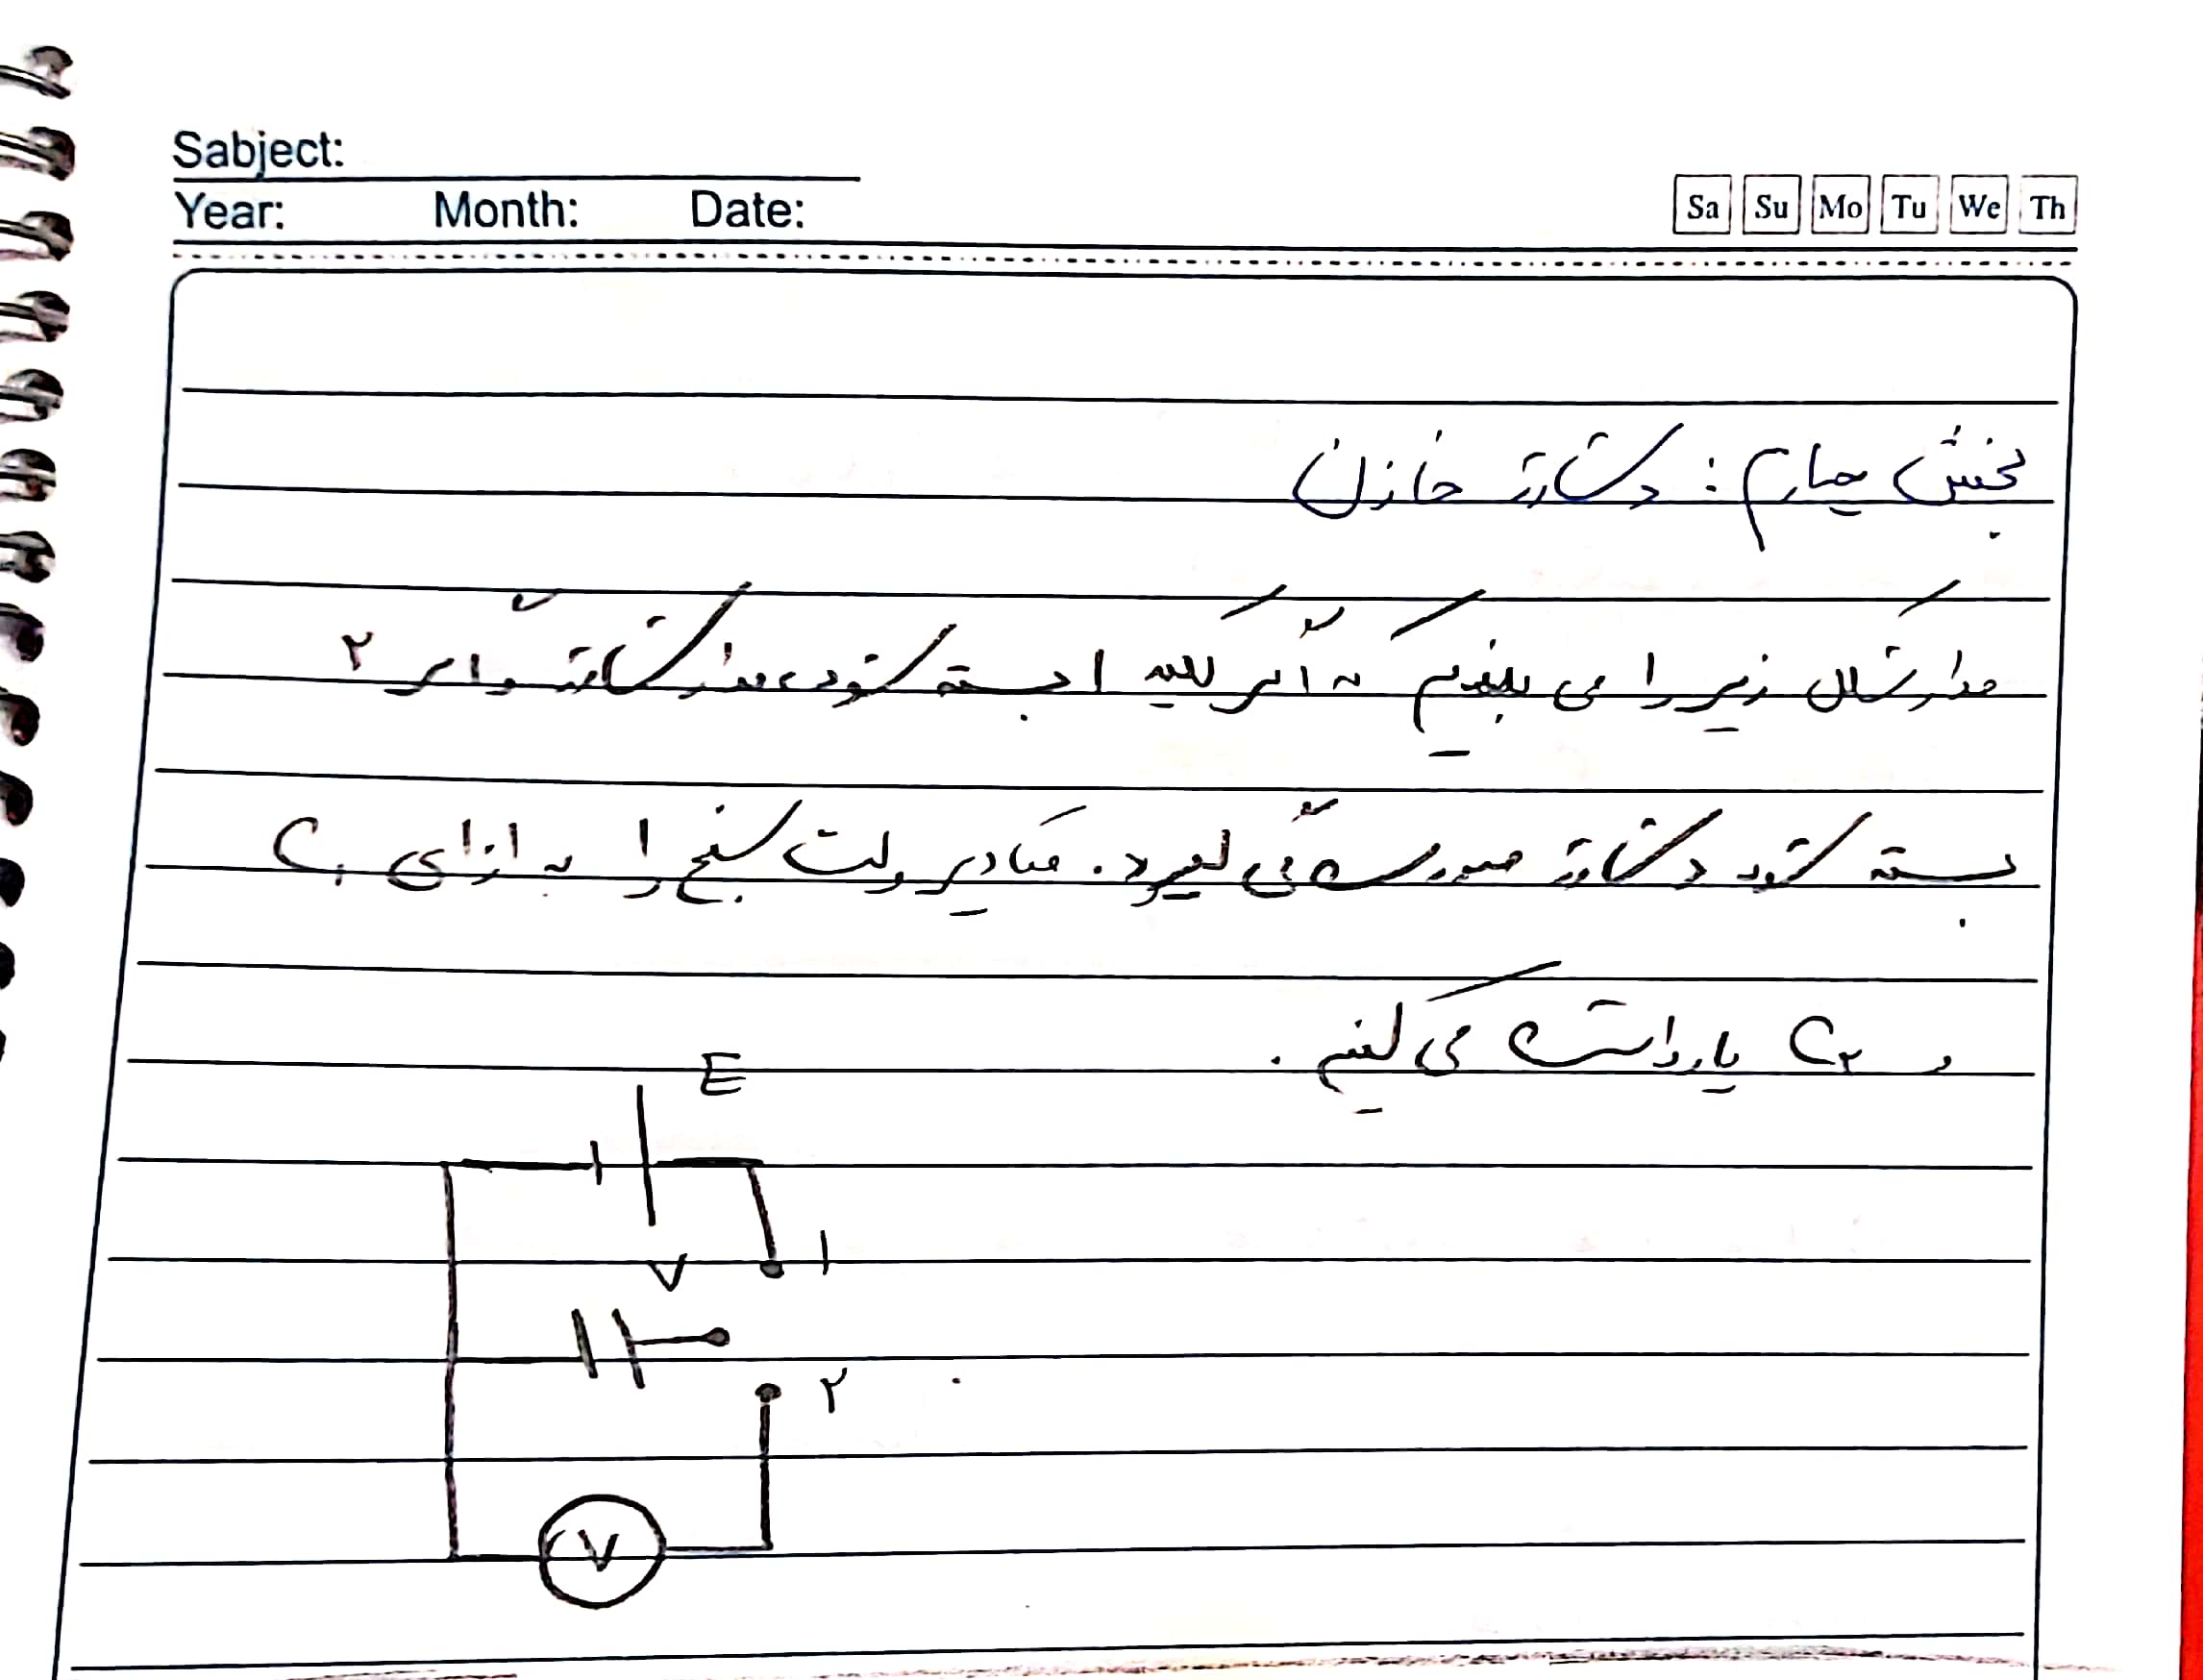 Sabject:
Year: Month: Date:
Sa Su Mo Tu We Th
بخش چهارم: دشارژ خازن
مدار شکل زیر را می بندیم که اگر کلید ۱ بسته شود مدار شارژ و اگر ۲
بسته شود دشارژ صورت می گیرد. مقادیر ولت سنج را به ازای C۱
و C۲ یادداشت می کنیم.
E
۱
V
۲
V